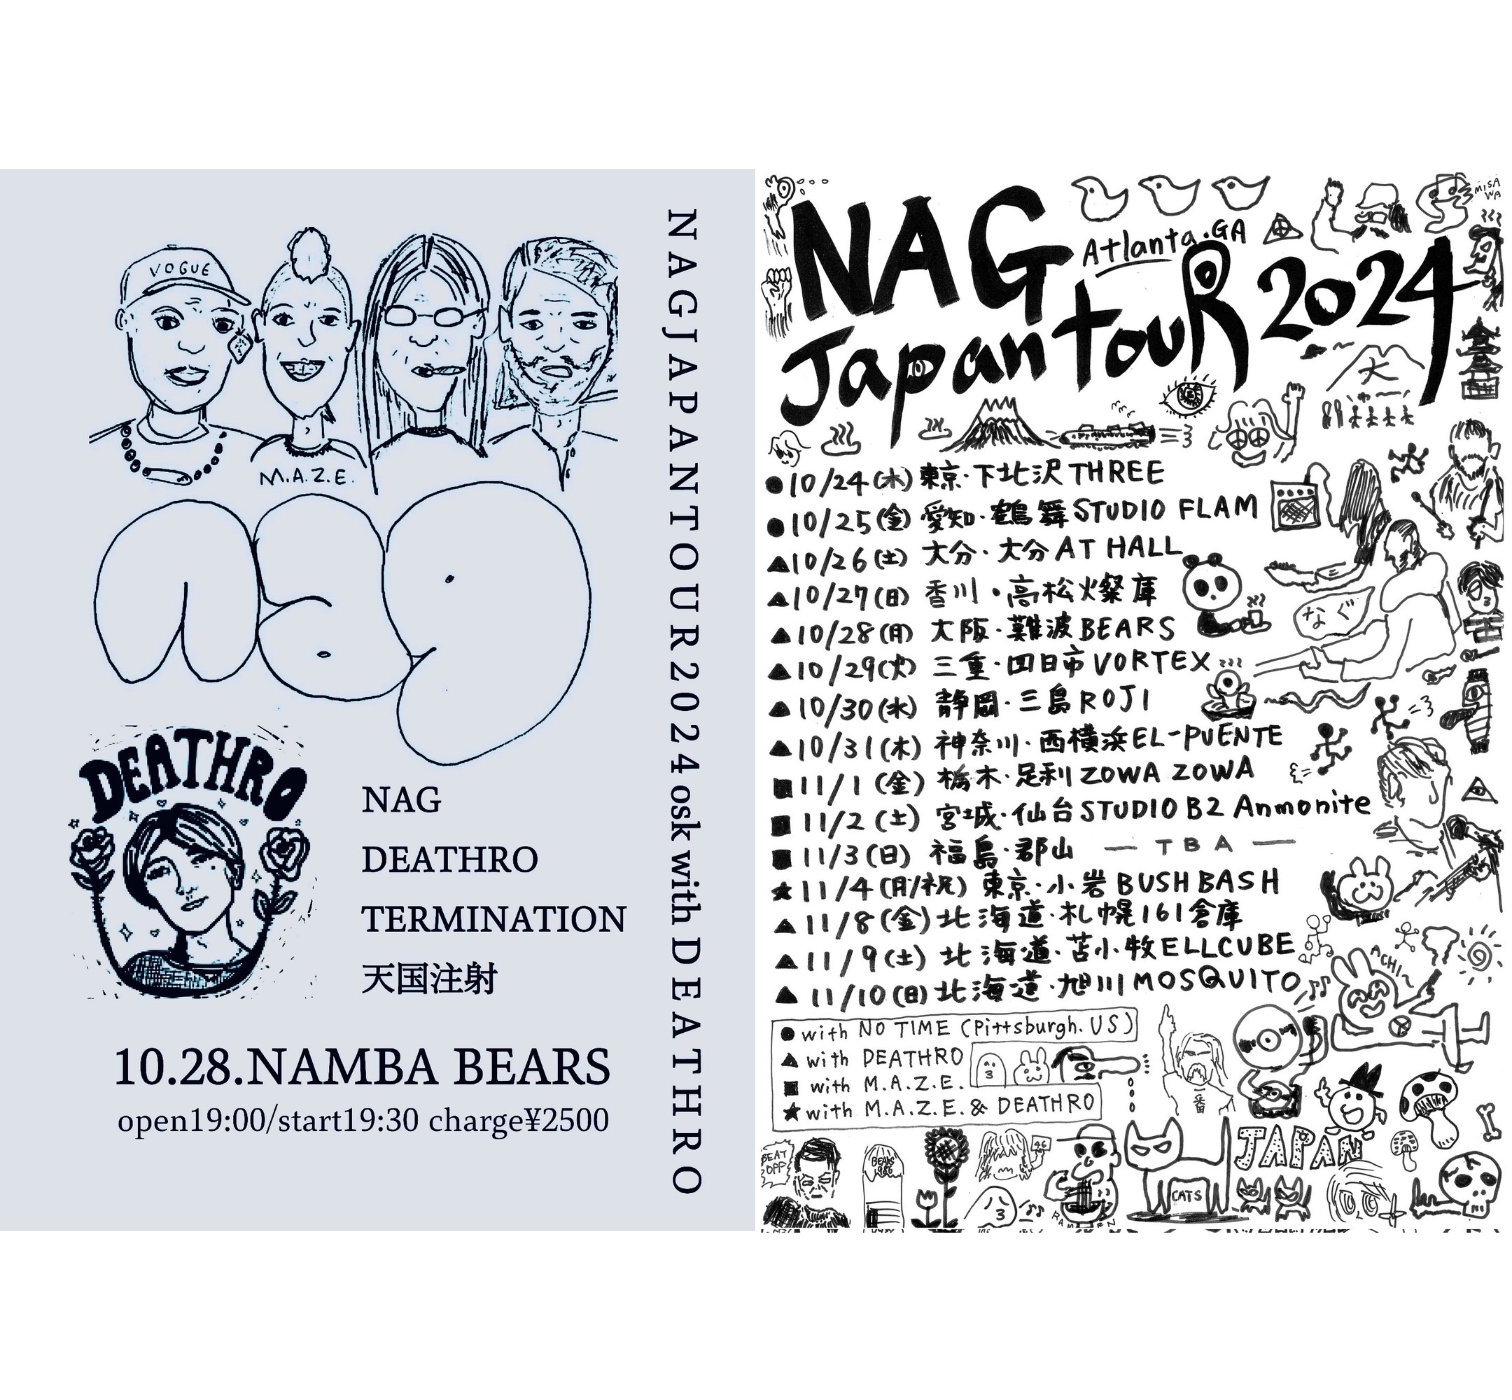 VOGUE
M.A.Z.E.
nag
DEATHRO
NAG
DEATHRO
TERMINATION
天国注射
10.28.NAMBA BEARS
open19:00/start19:30 charge¥2500
NAGJAPANTOUR2024 osk with DEATHRO
NAG
Atlanta.GA
Japan touR 2024
MISAWA
大
●10/24(木)東京・下北沢THREE
●10/25(金)愛知・鶴舞STUDIO FLAM
▲10/26(土)大分・大分AT HALL
▲10/27(日)香川・高松火燦庫
▲10/28(月)大阪・難波BEARS
▲10/29(火)三重・四日市VORTEX
▲10/30(水)静岡・三島ROJI
▲10/31(木)神奈川・西横浜EL-PUENTE
■11/1(金)栃木・足利ZOWA ZOWA
■11/2(土)宮城・仙台STUDIO B2 Anmonite
■11/3(日)福島・郡山 ―TBA―
★11/4(月/祝)東京・小岩BUSHBASH
▲11/8(金)北海道・札幌161倉庫
▲11/9(土)北海道・苫小牧ELLCUBE
▲11/10(日)北海道・旭川MOSQUITO
なぐ
●with NO TIME (Pittsburgh.US)
▲with DEATHRO
■with M.A.Z.E.
★with M.A.Z.E.& DEATHRO
番
JAPAN
CATS